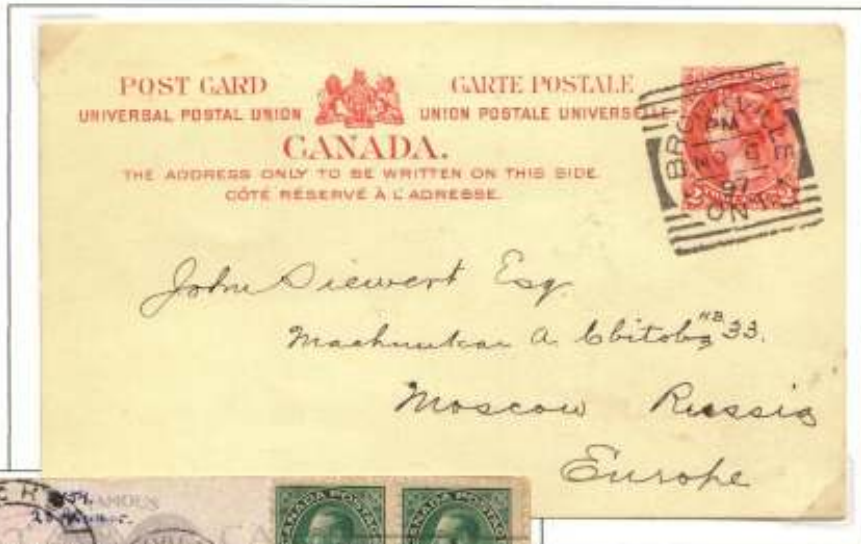 POST CARD CARTE POSTALE
UNIVERSAL POSTAL UNION UNION POSTALE UNIVERSELLE
CANADA.
THE ADDRESS ONLY TO BE WRITTEN ON THIS SIDE.
CÔTÉ RÉSERVÉ À L'ADRESSE.
BROCKVILLE
PM
NO
97
ONT.
John Siewert Esq.
33.
Moscow Russia
Europe
CANADA POSTAGE CANADA POSTAGE